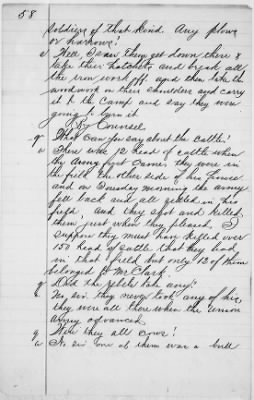 58
Soldiers of that kind. Any plows
or harrows?
a Well I saw them get down there &
take their hatchets and break all
the iron work off and then take the
woodwork on their shoulders and carry
it to the Camp and say they were
going to burn it
By Counsel
q What can you say about the cattle?
a There was 12 head of cattle when
the Army first came they were in
the field the other side of his house
and on Tuesday morning the army
fell back and all got in his
field, and they shot and killed
them just when they pleased, I
suppose they must have killed over
150 head of cattle that they had
in that field but only 12 of them
belonged to Mr Clark.
q Did the rebels take any?
a No, sir, they never took any of his,
they were all there when the union
Army advanced
q Were they all cows?
a No sir one of them was a bull